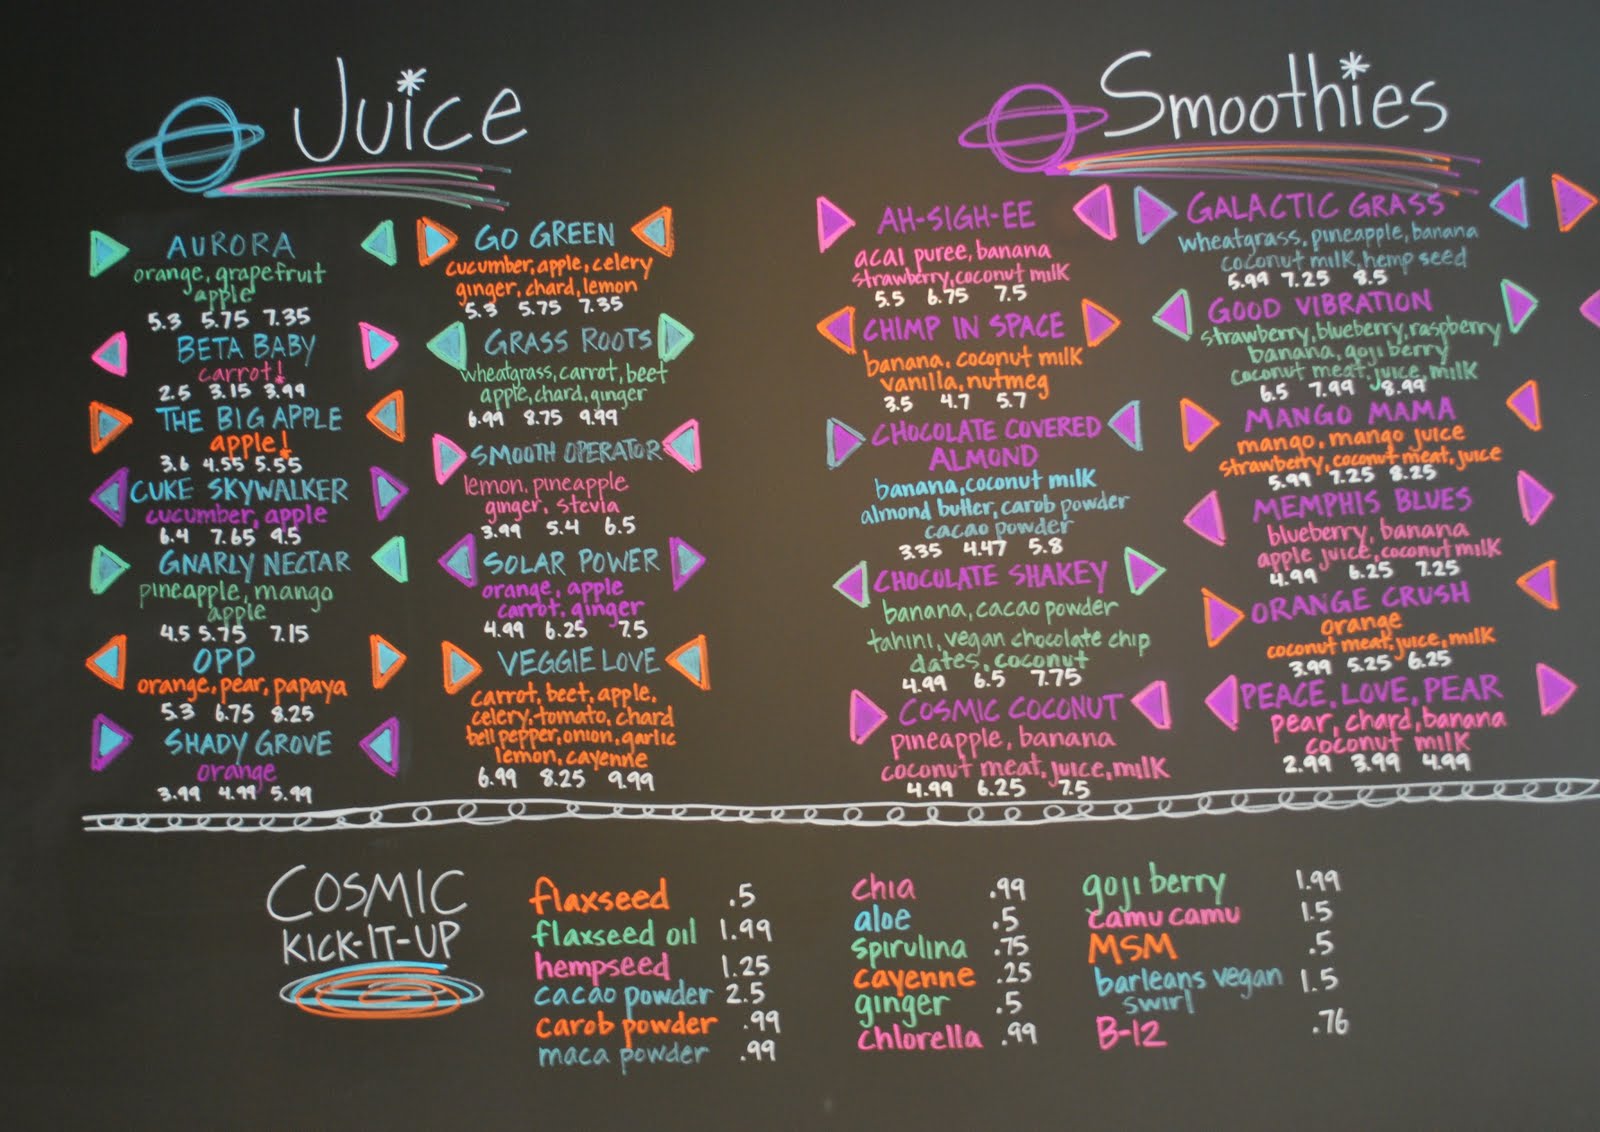 Juice
AURORA
orange, grapefruit
apple
5.3 5.75 7.35
BETA BABY
carrot!
2.5 3.15 3.99
THE BIG APPLE
apple!
3.6 4.55 5.55
CUKE SKYWALKER
cucumber, apple
6.4 7.65 9.5
GNARLY NECTAR
pineapple, mango
apple
4.5 5.75 7.15
OPP
orange, pear, papaya
5.3 6.75 8.25
SHADY GROVE
orange
3.99 4.99 5.99
GO GREEN
cucumber, apple, celery
ginger, chard, lemon
5.3 5.75 7.35
GRASS ROOTS
wheatgrass, carrot, beet
apple, chard, ginger
6.99 8.75 9.99
SMOOTH OPERATOR
lemon, pineapple
ginger, stevia
3.99 5.4 6.5
SOLAR POWER
orange, apple
carrot, ginger
4.99 6.25 7.5
VEGGIE LOVE
carrot, beet, apple,
celery, tomato, chard
bell pepper, onion, garlic
lemon, cayenne
6.99 8.25 9.99
Smoothies
AH-SIGH-EE
acai puree, banana
strawberry, coconut milk
5.5 6.75 7.5
CHIMP IN SPACE
banana, coconut milk
vanilla, nutmeg
3.5 4.7 5.7
CHOCOLATE COVERED
ALMOND
banana, coconut milk
almond butter, carob powder
cacao powder
3.35 4.47 5.8
CHOCOLATE SHAKEY
banana, cacao powder
tahini, vegan chocolate chip
dates, coconut
4.99 6.5 7.75
COSMIC COCONUT
pineapple, banana
coconut meat, juice, milk
4.99 6.25 7.5
GALACTIC GRASS
wheatgrass, pineapple, banana
coconut milk, hemp seed
5.99 7.25 8.5
GOOD VIBRATION
strawberry, blueberry, raspberry
banana, goji berry
coconut meat, juice, milk
6.5 7.99 8.99
MANGO MAMA
mango, mango juice
strawberry, coconut meat, juice
5.99 7.25 8.25
MEMPHIS BLUES
blueberry, banana
apple juice, coconut milk
4.99 6.25 7.25
ORANGE CRUSH
orange
coconut meat, juice, milk
3.99 5.25 6.25
PEACE, LOVE, PEAR
pear, chard, banana
coconut milk
2.99 3.99 4.99
COSMIC
KICK-IT-UP
flaxseed .5
flaxseed oil 1.99
hempseed 1.25
cacao powder 2.5
carob powder .99
maca powder .99
chia .99
aloe .5
spirulina .75
cayenne .25
ginger .5
chlorella .99
goji berry 1.99
camu camu 1.5
MSM .5
barleans vegan 1.5
swirl
B-12 .76